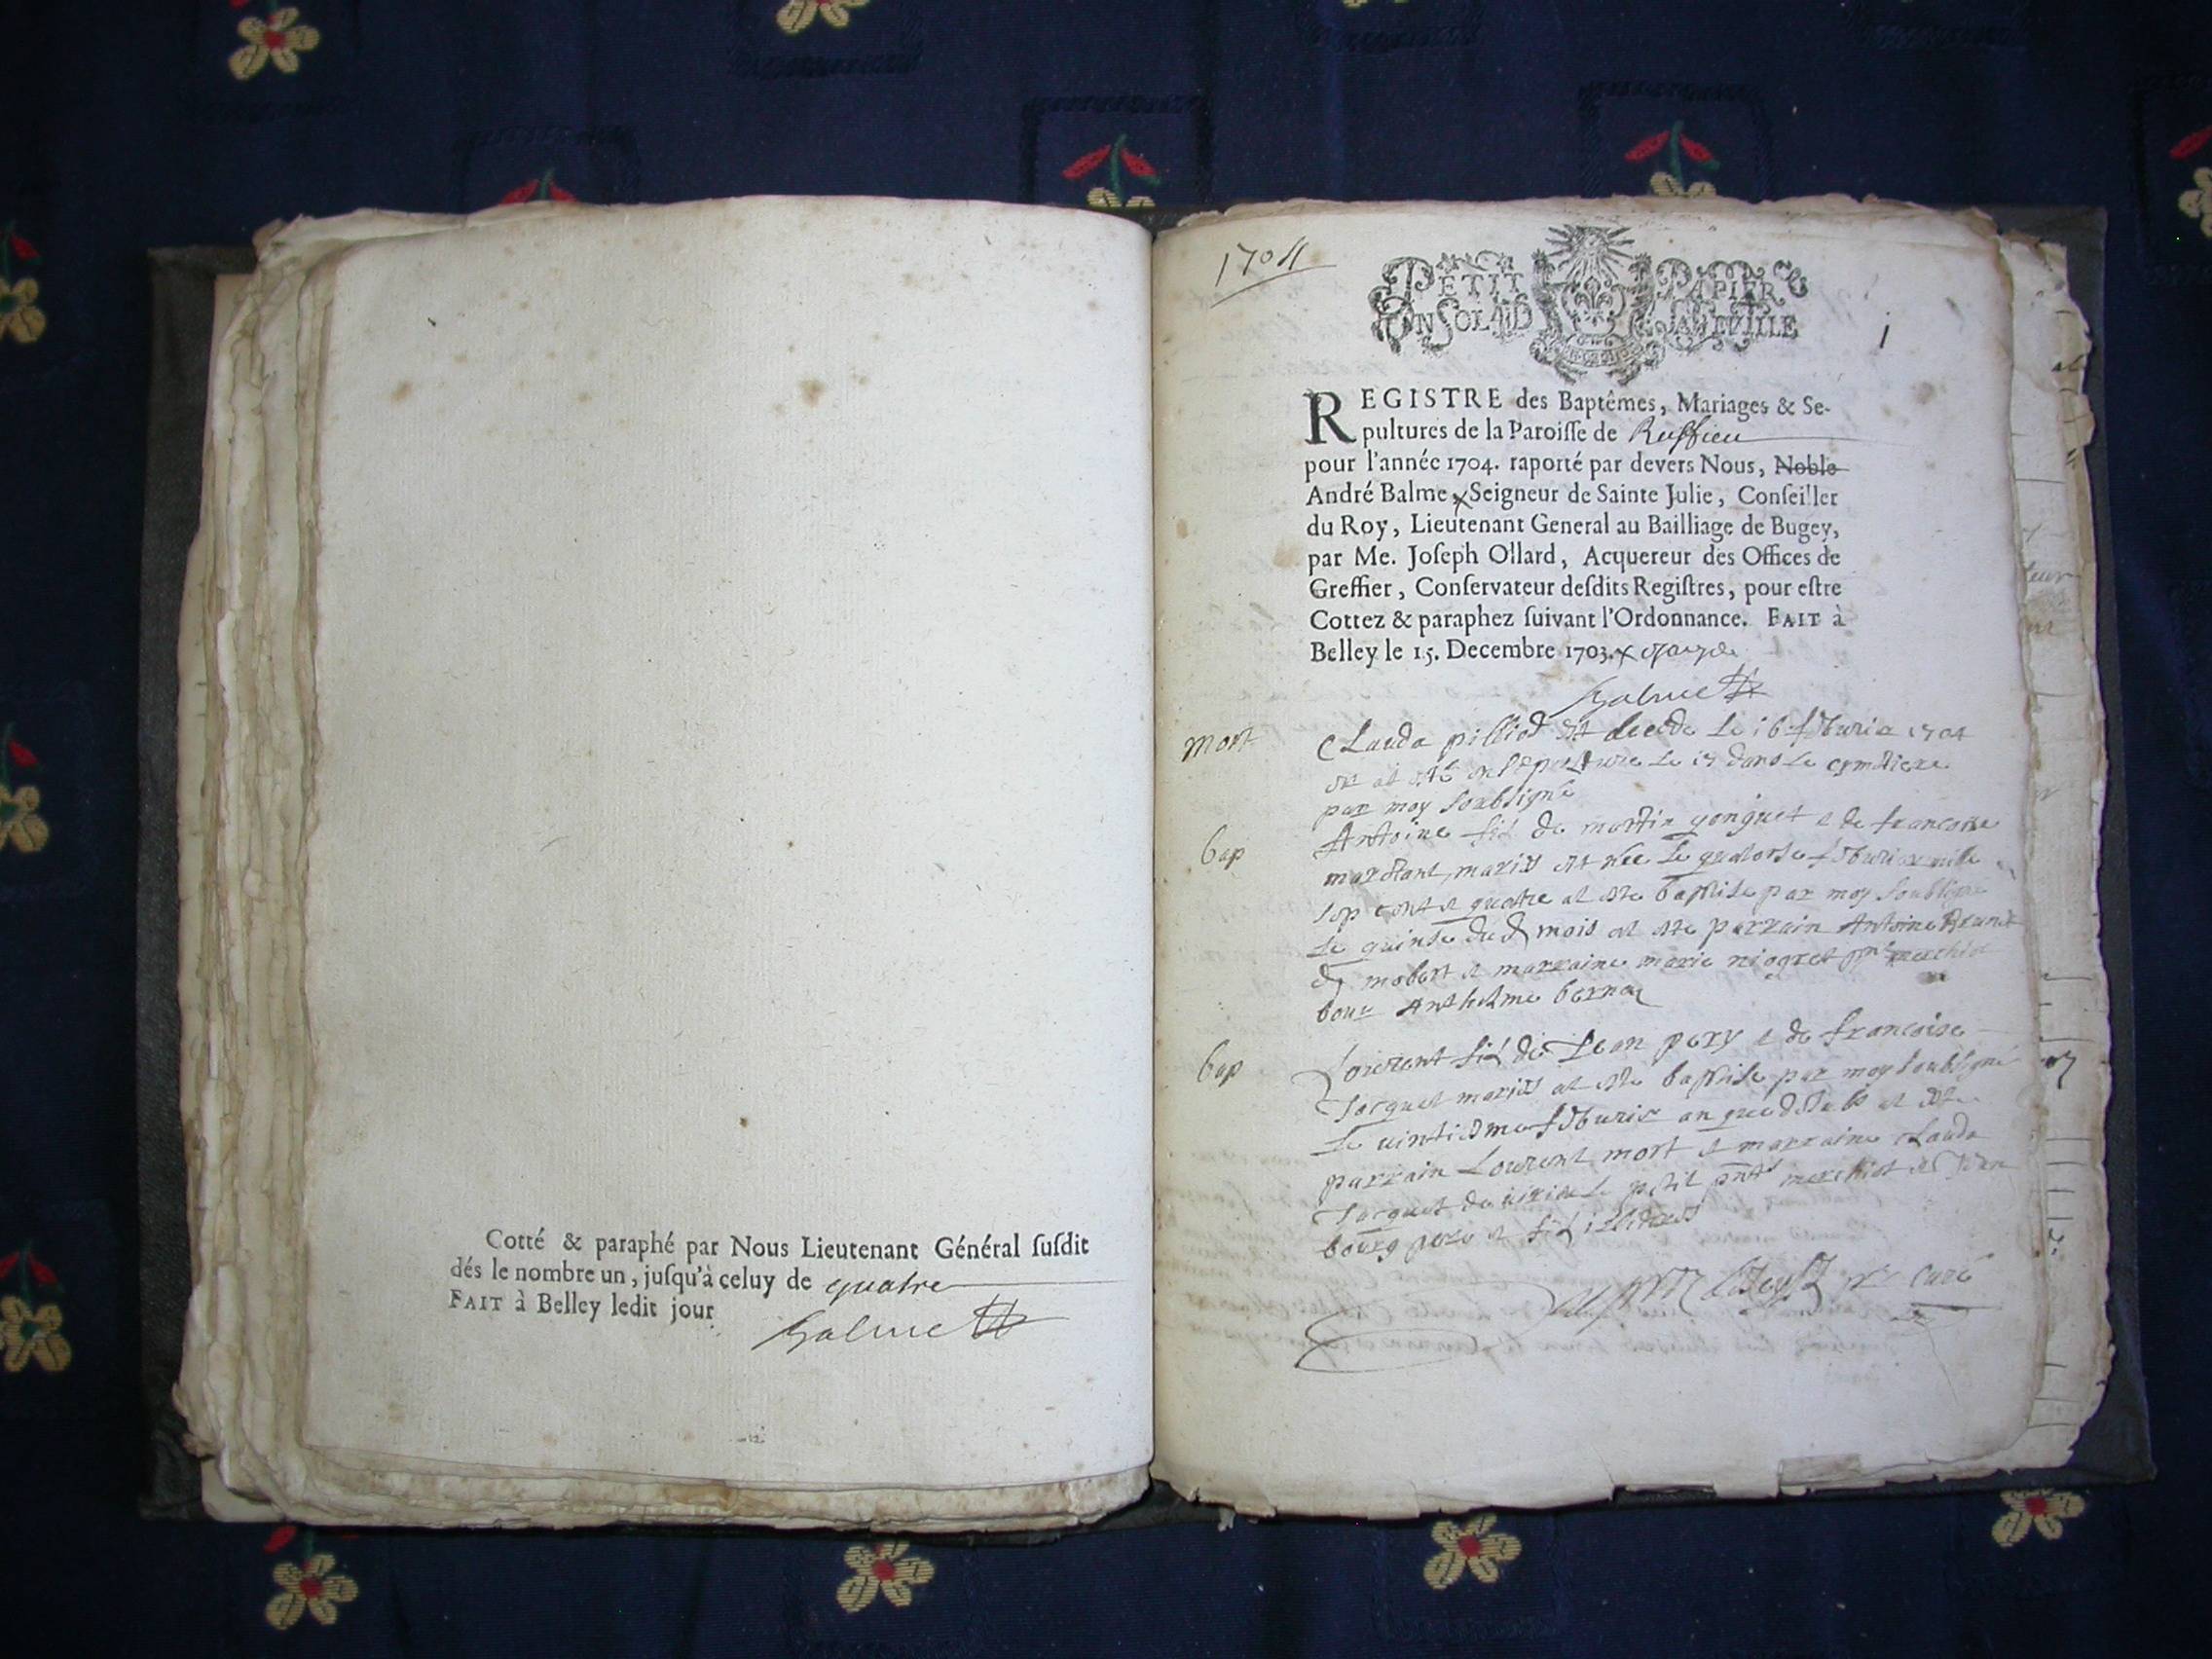 Cotté & paraphé par Nous Lieutenant Général ſuſdit
dés le nombre un, juſqu'à celuy de quatre
FAIT à Belley ledit jour
Balme
1704
PETIT PAPIER
UN SOL
1
REGISTRE des Baptêmes, Mariages & Se-
pultures de la Paroiſſe de Ruffieu
pour l'année 1704. raporté par devers Nous, Noble
André Balme, Seigneur de Sainte Julie, Conſeiller
du Roy, Lieutenant General au Bailliage de Bugey,
par Me. Joſeph Ollard, Acquereur des Offices de
Greffier, Conſervateur deſdits Regiſtres, pour eſtre
Cottez & paraphez ſuivant l'Ordonnance. FAIT à
Belley le 15. Decembre 1703.
Balme
mort
Clauda pilliod est decede le 16 1704
et at esté en sepulture le 17 dans le cymetiere
par moy soubsigné
bap
Antoine fil de martin yonguet e de francoise
mariés est née le quatorse mille
sep cent et quatre at este baptise par moy soubsigne
le quinse du d mois et este parrain Antoine Brunet
et marraine marie niogret
Anthelme
bap
Lourent fil de Jean pery e de francoise
Jacquet mariés at este baptise par moy soubsigné
le vintiesme an que dessus et este
parrain Lourent mort et marraine Clauda
Jacquet de le petit
et fil
curé